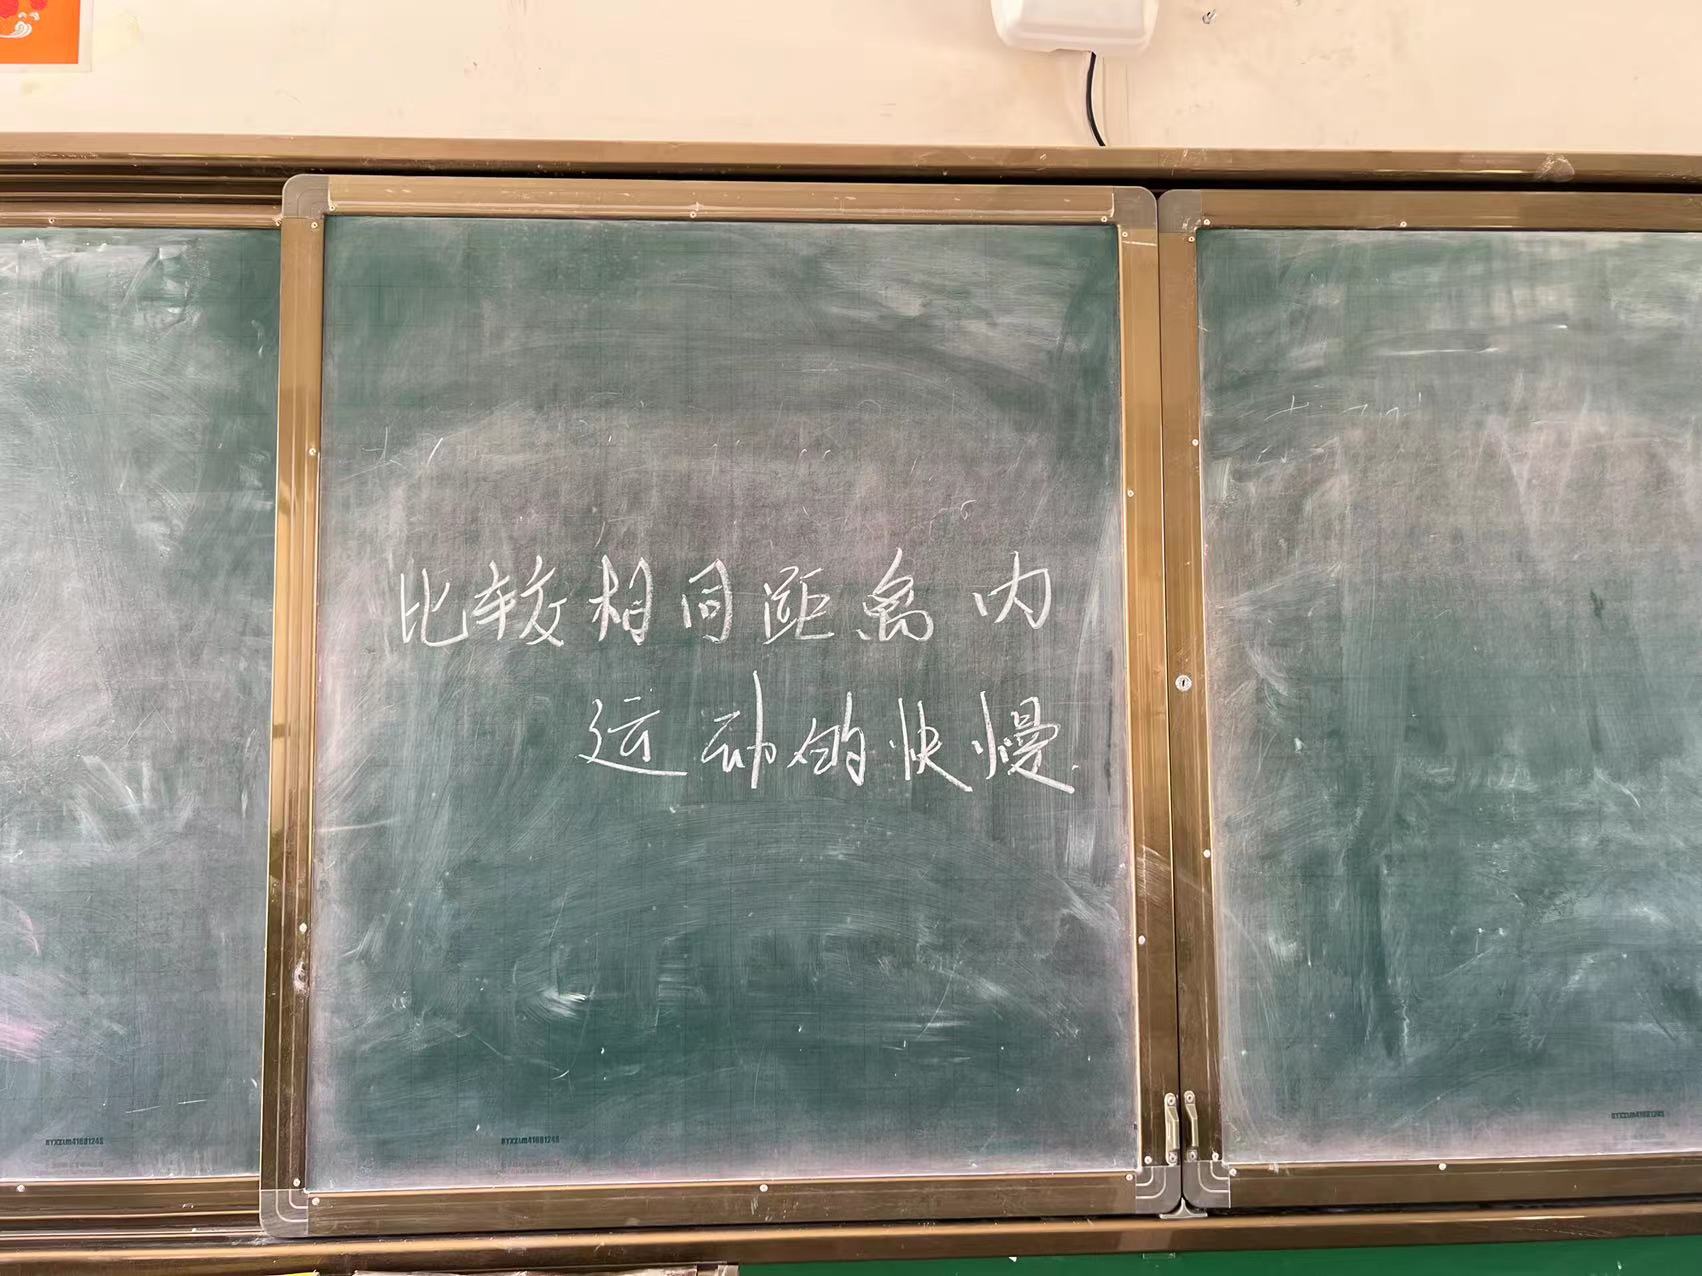 比较相同距离内
运动的快慢